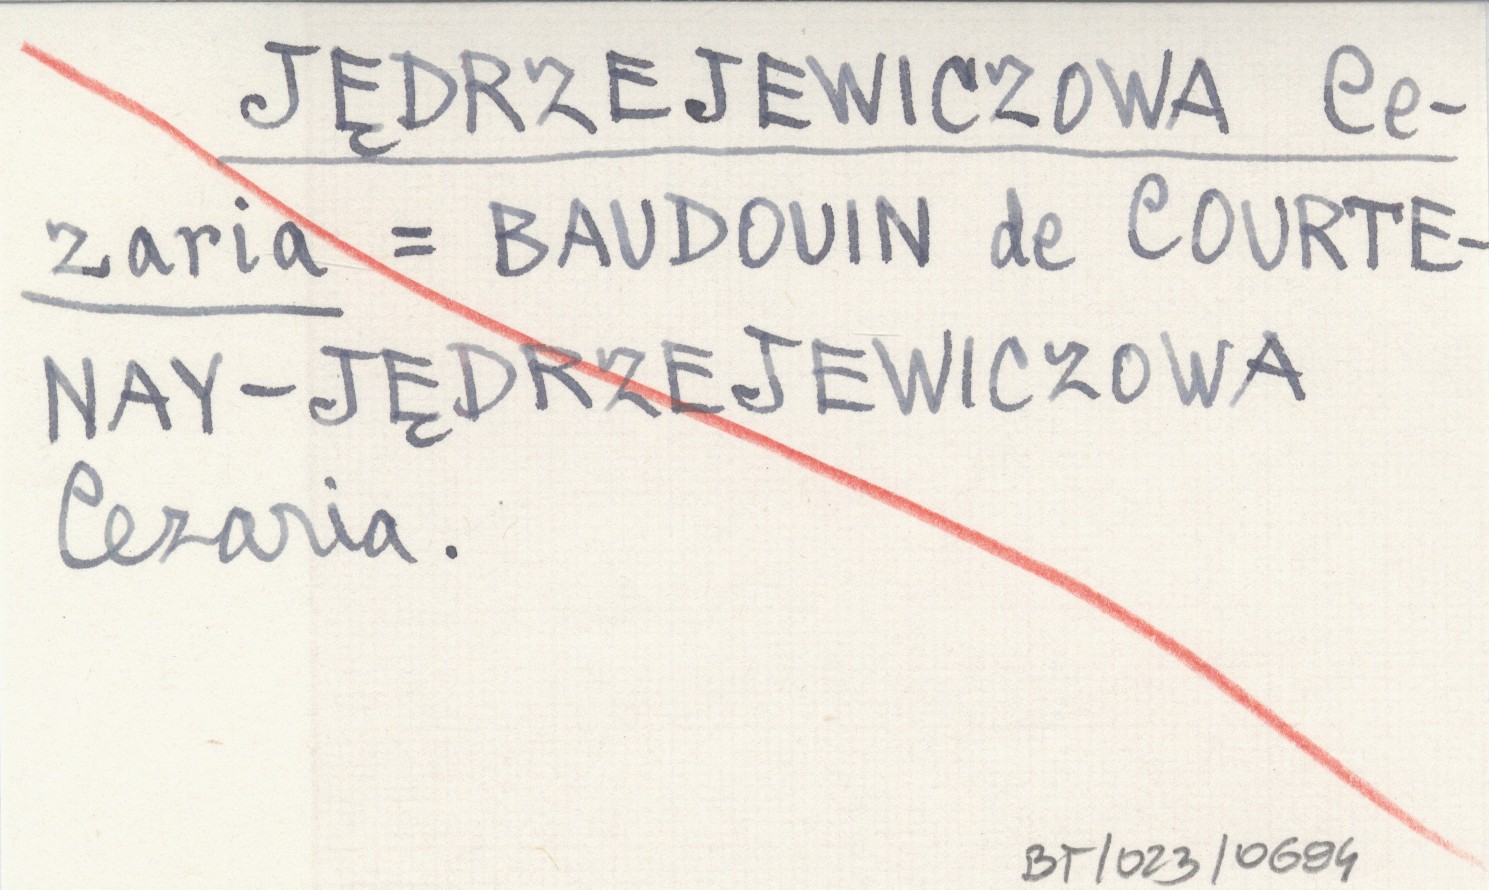 JĘDRZEJEWICZOWA Ce-
zaria = BAUDOUIN de COURTE-
NAY-JĘDRZEJEWICZOWA
Cezaria.
BT/023/0694